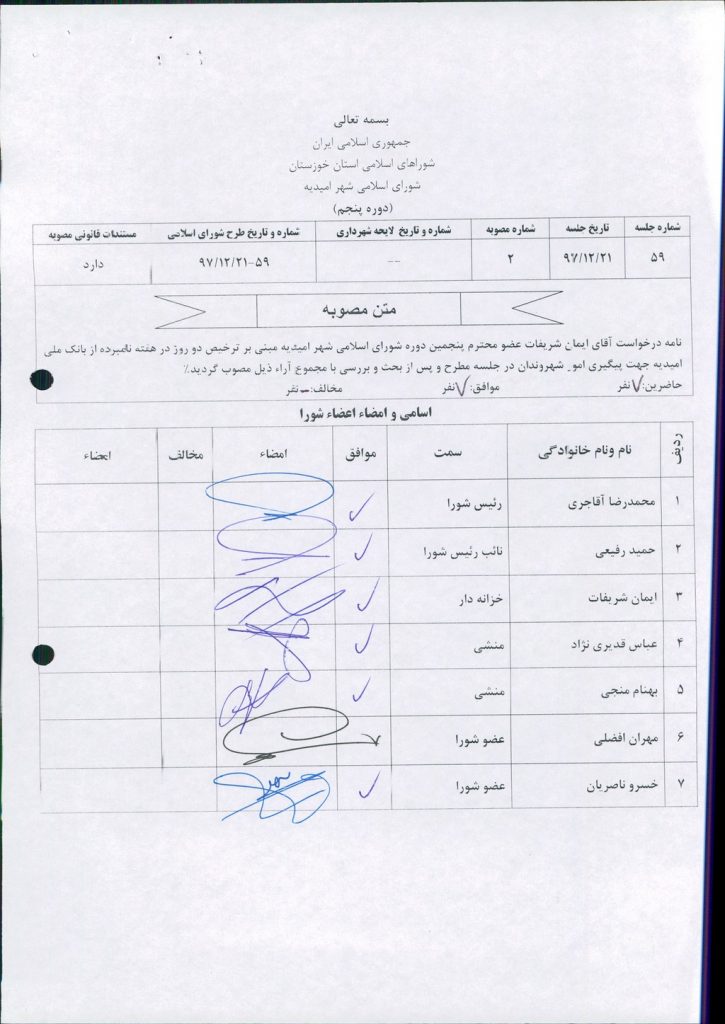 بسمه تعالی
جمهوری اسلامی ایران
شوراهای اسلامی استان خوزستان
شورای اسلامی شهر امیدیه
(دوره پنجم)
شماره جلسه تاریخ جلسه شماره مصوبه شماره و تاریخ لایحه شهرداری شماره و تاریخ طرح شورای اسلامی مستندات قانونی مصوبه
۵۹ ۹۷/۱۲/۲۱ ۲ -- ۹۷/۱۲/۲۱-۵۹ دارد
متن مصوبه
نامه درخواست آقای ایمان شریفات عضو محترم پنجمین دوره شورای اسلامی شهر امیدیه مبنی بر ترخیص دو روز در هفته نامبرده از بانک ملی
امیدیه جهت پیگیری امور شهروندان در جلسه مطرح و پس از بحث و بررسی با مجموع آراء ذیل مصوب گردید٪
حاضرین:۷ نفر موافق:۷ نفر مخالف: – نفر
اسامی و امضاء اعضاء شورا
ردیف نام ونام خانوادگی سمت موافق امضاء مخالف امضاء
۱ محمدرضا آقاجری رئیس شورا ✓
۲ حمید رفیعی نائب رئیس شورا ✓
۳ ایمان شریفات خزانه دار ✓
۴ عباس قدیری نژاد منشی ✓
۵ بهنام منجی منشی ✓
۶ مهران افضلی عضو شورا ✓
۷ خسرو ناصریان عضو شورا ✓